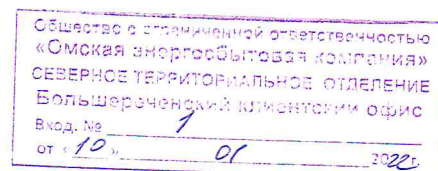 Общество с ограниченной ответственностью
«Омская энергосбытовая компания»
СЕВЕРНОЕ ТЕРРИТОРИАЛЬНОЕ ОТДЕЛЕНИЕ
Большереченский клиентский офис
Вход. № 1
от «10» 01 2022 г.